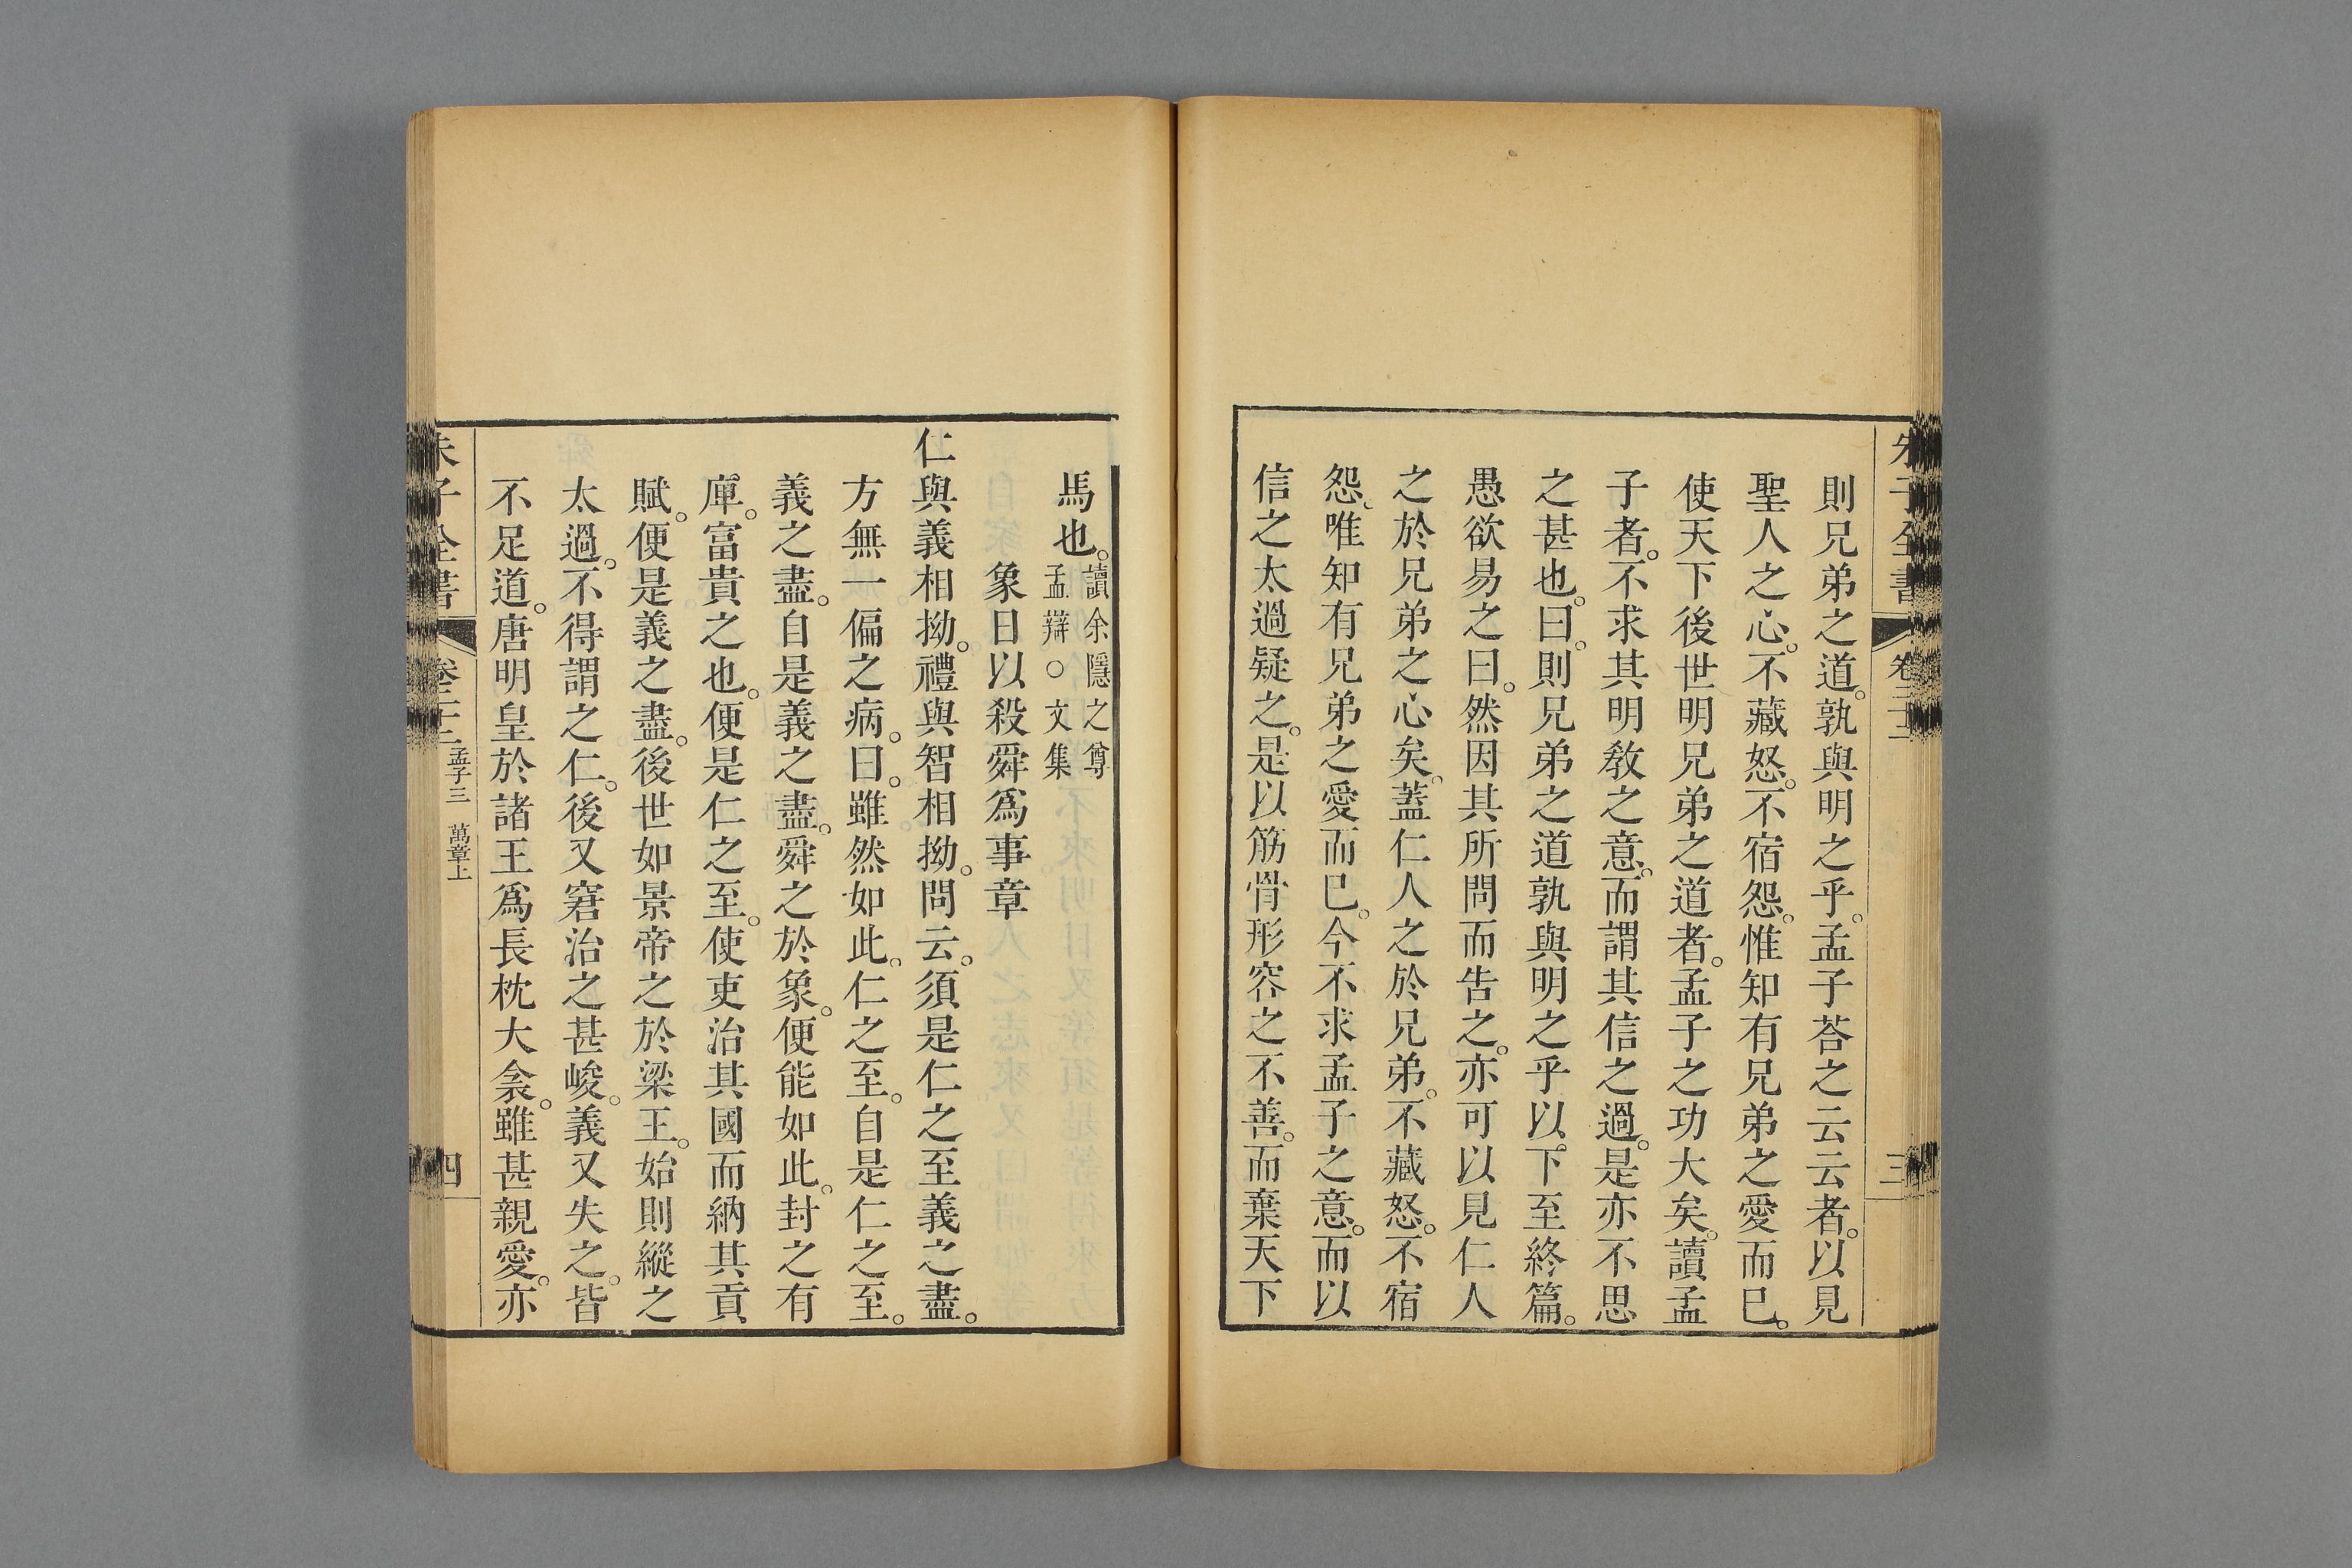 則兄弟之道。孰與明之乎。孟子荅之云云者。以見
聖人之心。不藏怒。不宿怨。惟知有兄弟之愛而巳。
使天下後世明兄弟之道者。孟子之功大矣。讀孟
子者。不求其明敎之意。而謂其信之過。是亦不思
之甚也。曰。則兄弟之道孰與明之乎以。下至終篇。
愚欲易之曰。然因其所問而告之。亦可以見仁人
之於兄弟之心矣。蓋仁人之於兄弟。不藏怒。不宿
怨。唯知有兄弟之愛而巳。今不求孟子之意。而以
信之太過疑之。是以筋骨形容之不善。而棄天下
馬也。讀余隱之尊
孟辯○文集
象日以殺舜爲事章
仁與義相拗。禮與智相拗。問云。須是仁之至義之盡。
方無一偏之病。曰。雖然如此。仁之至。自是仁之至。
義之盡。自是義之盡。舜之於象。便能如此。封之有
庳。富貴之也。便是仁之至。使吏治其國而納其貢
賦。便是義之盡。後世如景帝之於梁王。始則縱之
太過。不得謂之仁。後又窘治之甚峻。義又失之。皆
不足道。唐明皇於諸王爲長枕大衾。雖甚親愛。亦
朱子全書
孟子三 萬章上
四